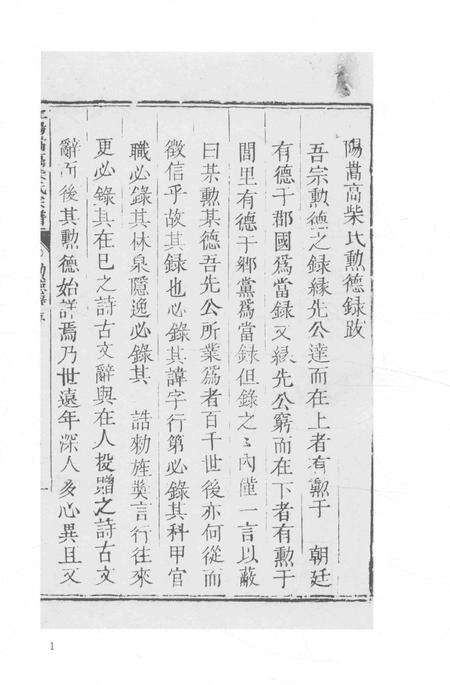 陽嵩高柴氏勲德録跋
吾宗勲德之録緣先公達而在上者有勲于 朝廷
有德于郡國爲當録又緣先公窮而在下者有勲于
閭里有德于鄉黨爲當録但錄之〻内僅一言以蔽
曰某勲某德吾先公所業爲者百千世後亦何從而
徵信乎故其録也必錄其諱字行第必錄其科甲官
職必錄其林泉隱逸必錄其 誥勅旌奬言行往來
更必錄其在巳之詩古文辭與在人投贈之詩古文
辭而後其勲德始詳焉乃世遠年深人多心異且又
柴氏宗譜
勲德錄
1